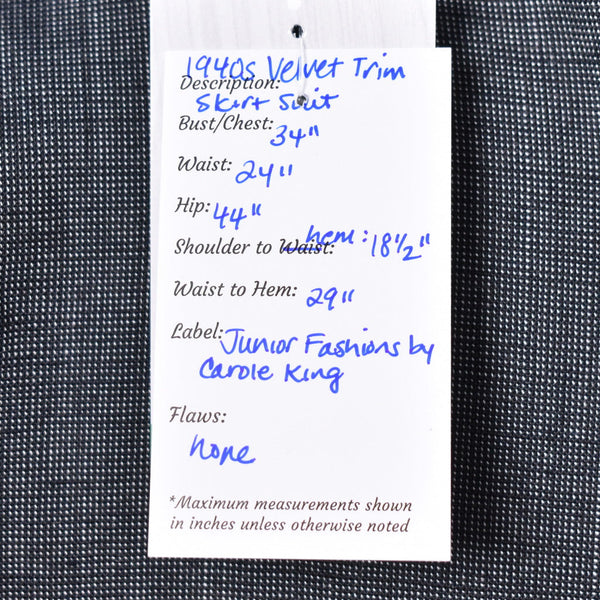 1940s Velvet Trim
Description:
Skirt Suit
Bust/Chest: 34"
Waist: 24"
Hip: 44"
Shoulder to Waist: hem: 18 1/2"
Waist to Hem: 29"
Label: Junior Fashions by
Carole King
Flaws:
none
*Maximum measurements shown
in inches unless otherwise noted